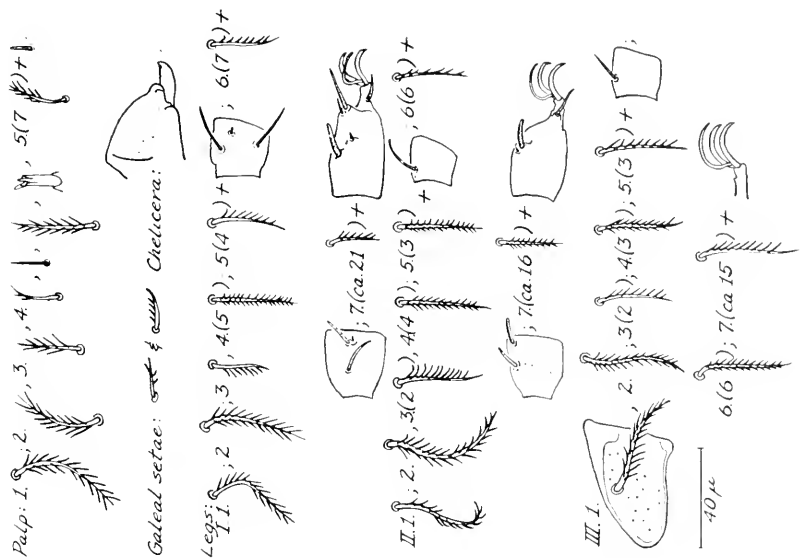 Palp: 1. , 2. , 3. , 4. , , 5.(7 )+ .
Galeal setae: & Chelicera: .
Legs:
I 1. ; 2 ; 3 , 4.(5 ); 5(4 )+ ; 6.(7 )+
; 7.(ca.21 )+
II.1. ; 2. , 3.(2 ), 4(4 ); 5.(3 ) + , 6(6 )+
; 7.(ca.16 )+
III.1. , 2. , 3(2 ); 4(3 ); 5.(3 )+ ;
6.(6 ); 7.(ca 15 )+
40 µ